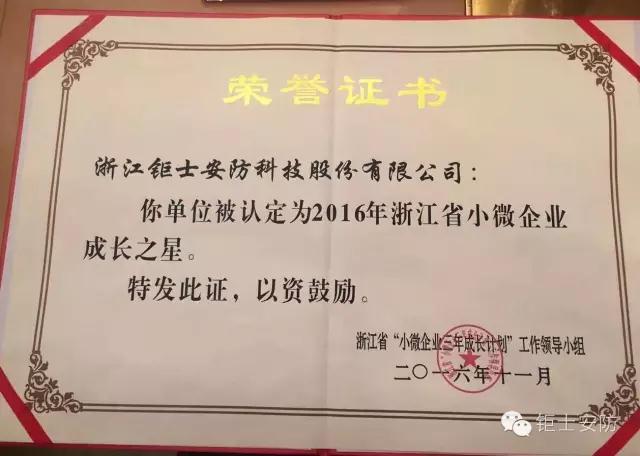 荣誉证书
浙江钜士安防科技股份有限公司：
你单位被认定为2016年浙江省小微企业
成长之星。
特发此证，以资鼓励。
浙江省“小微企业三年成长计划”工作领导小组
二〇一六年十一月
钜士安防